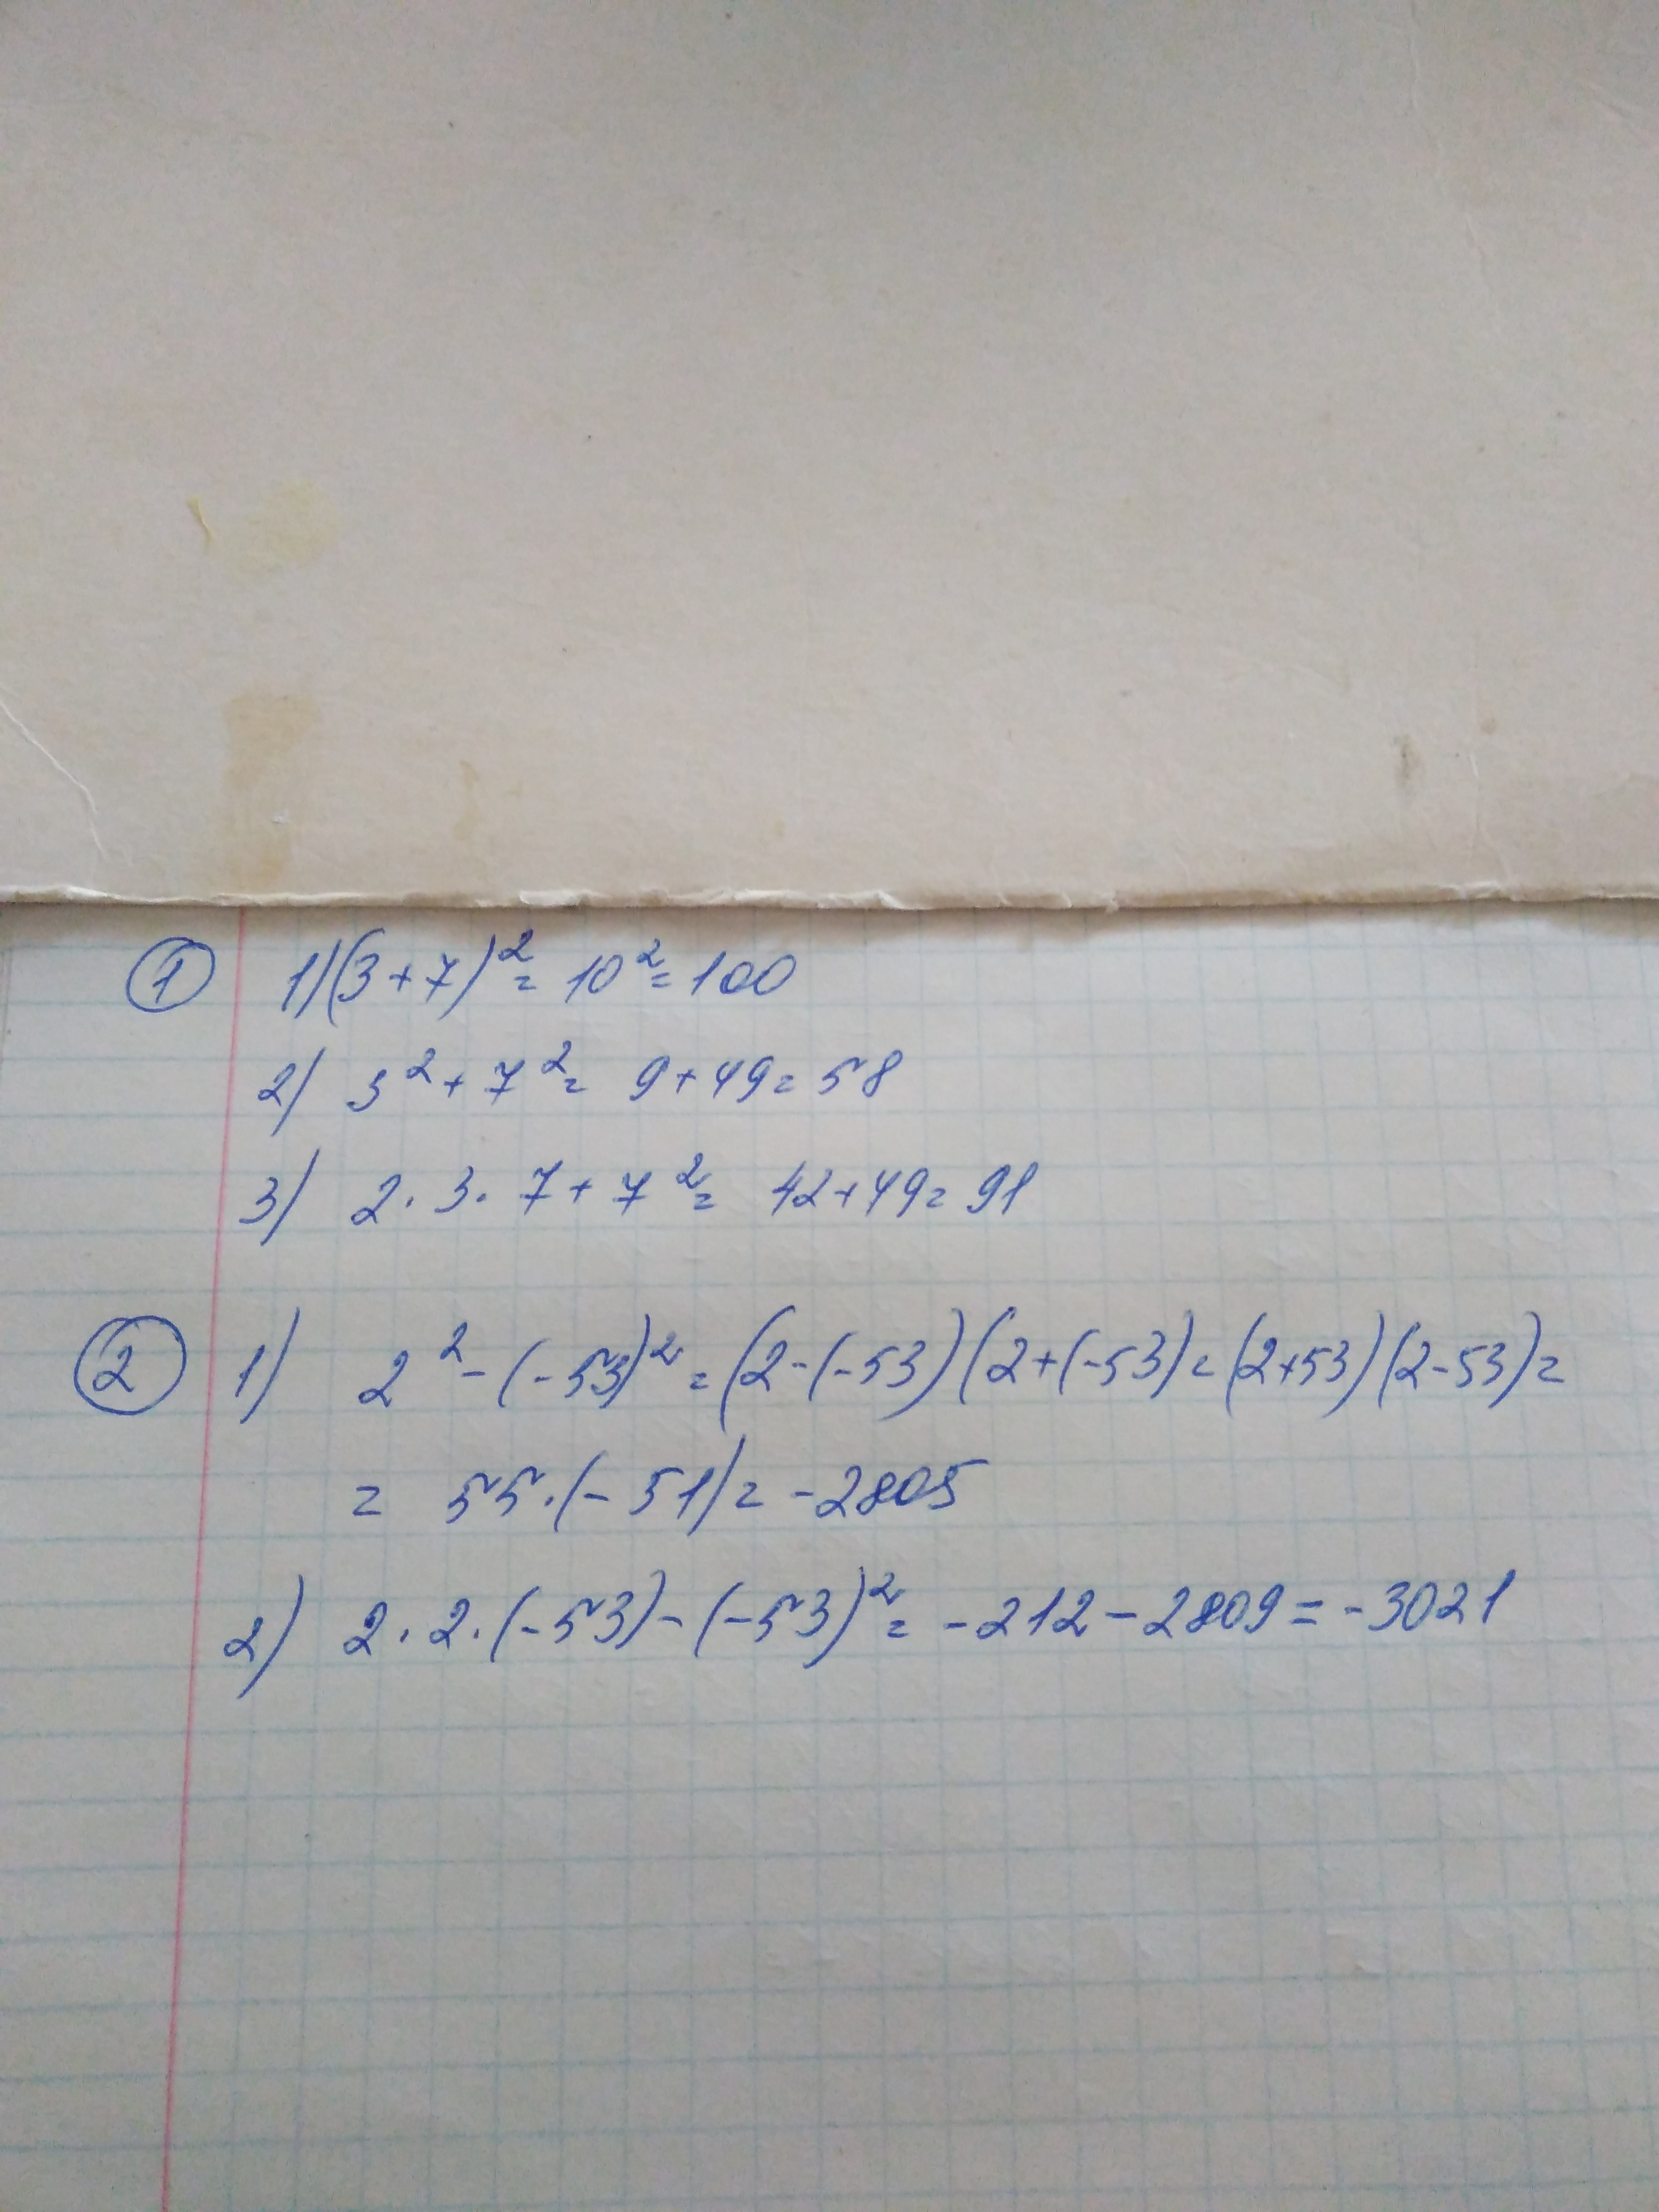 ① 1) (3+7)² = 10² = 100
2) 3² + 7² = 9+49 = 58
3) 2·3·7+7² = 42+49 = 91
② 1) 2² - (-53)² = (2-(-53)(2+(-53) = (2+53)(2-53) =
= 55·(-51) = -2805
2) 2·2·(-53)-(-53)² = -212-2809 = -3021